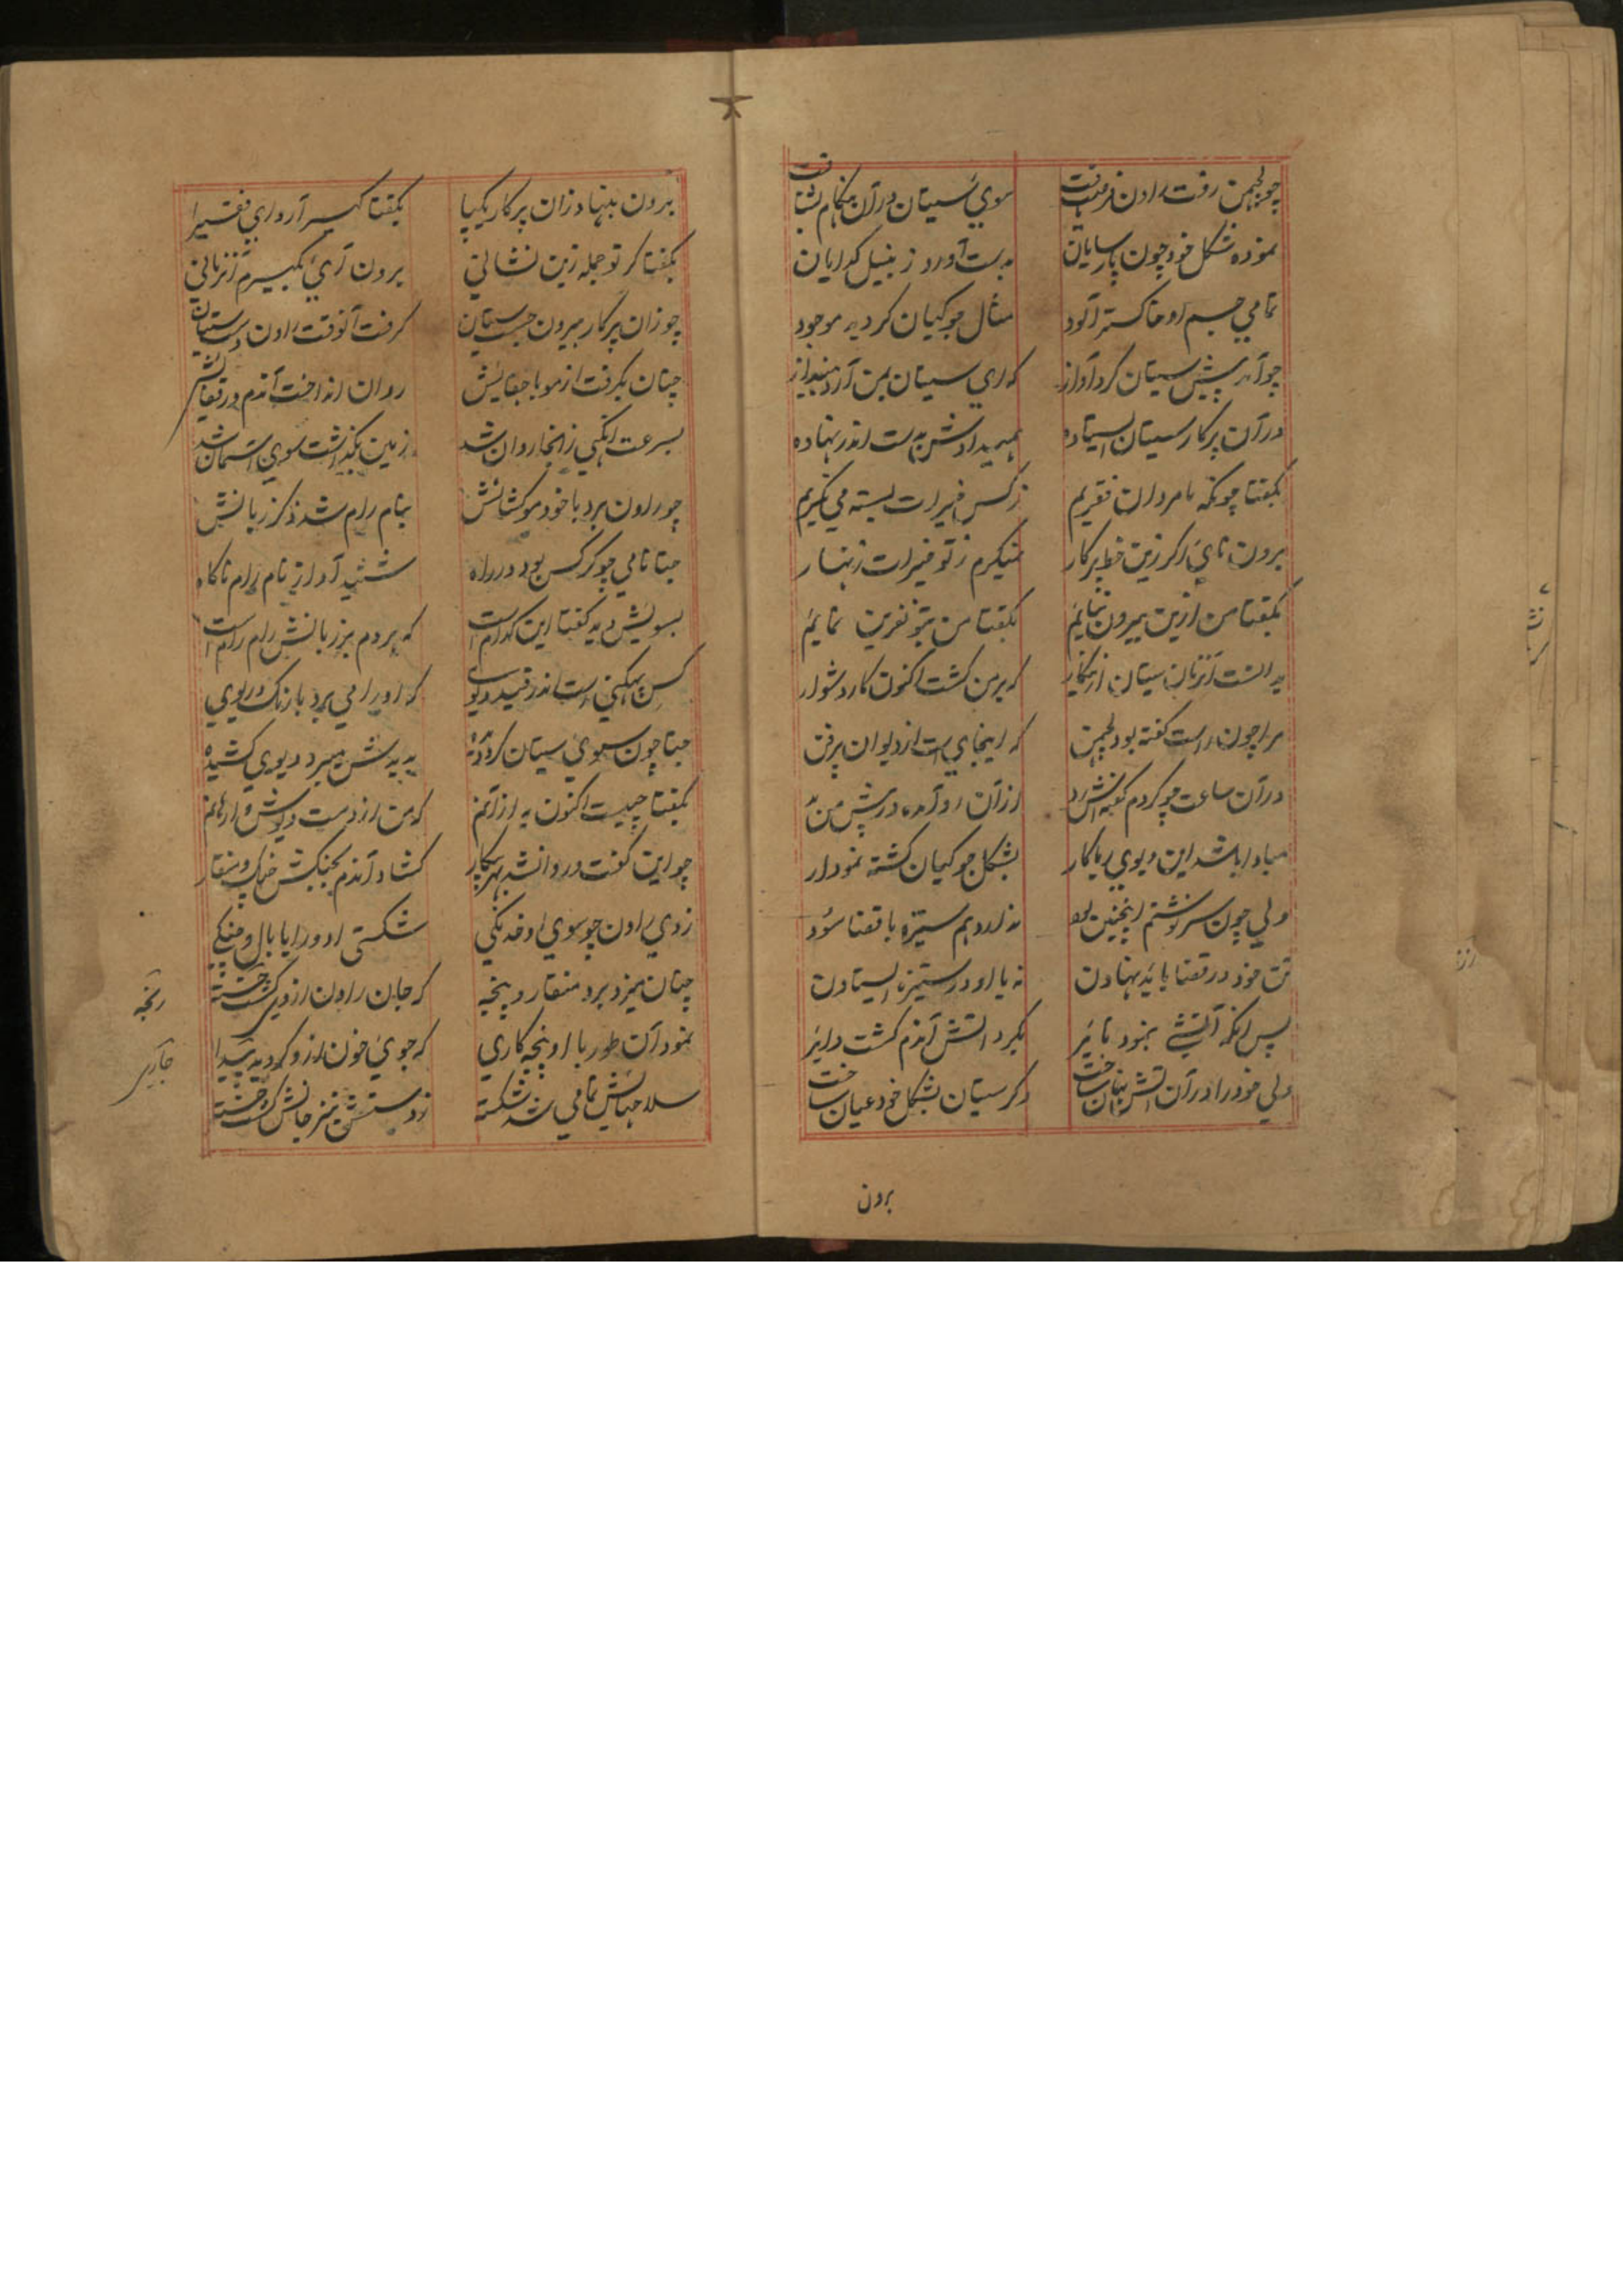 چو لچمن رفت راون فرصت یافت سوی سیتان در آن هنگام بشتافت
نموده شکل خود چون پارسایان بدست آورد زنبیل گدایان
تمامی جسم او خاکستر آلود مثال جوکیان گردیه موجود
چو آمد پیش سیتان کرد آواز که ای سیتان بمن آرد بنداز
در آن پرکار سیتان ایستاده همیدادش بدست اندر نهاده
بگفتا چونکه ما مردان فقیریم ز کس خیرات بسته می نگیریم
برون نائی اگر زین خط پرکار نگیرم ز تو خیرات زنهار
بگفتا من ازین بیرون نیایم بگفتا من بتو نفرین نمایم
بدانست آنزمان سیتان که بر من گشت اکنون کار دشوار
مرا چون راست گفته بود لچمن که اینجای است از دیوان پرفن
در آن ساعت چو کردم از آن رو آمده در پیش من
مبادا باشد این دیوی ریاکار بشکل جوکیان گشته نمودار
ولی چون سرنوشتم اینچنین بود ندارد هم ستیزه با قضا سود
تن خود در قضا باید نهادن نه با او در ستیزه ایستادن
پس آنگه آتشی بنمود بگرد آتش آندم گشت دائر
ولی خود را در آن آتش نهان ساخت دگر سیتان بشکل خود عیان ساخت
برون
برون بنهاد زان پرکار یکپا بگفتا گیر آرد ای فقیرا
بگفتا گر تو جمله زین نشانی برون آری بگیرم آنزمانی
چو زان پرکار بیرون جست سیتان گرفت آنوقت راون دست سیتان
چنان بگرفت از مو با جفایش روان انداخت آندم در قفایش
بسرعت انگهی زانجا روان شد زمین بگذاشت سوی آسمان شد
چو راون برد با خود مو کشانش بنام رام شد ذکر زبانش
جتا نامی چو کرکس بود در راه شنید آواز نام رام ناگاه
بسویش دید گفتا این کدام است که هر دم بر زبانش رام رام است
کس است اندر قید دیوی که او را می برد با رنگ و ریوی
جتا چون سوی سیتان کرد دیده بدیدش میبرد دیوی کشیده
بگفتا چیست اکنون به ازانم که من از دست دیوش وارهانم
چو این گفت و روانشد بهر پیکار گشاد آندم بجنگش چنگ و منقار
زدی راون چو سوی او خدنگی شکستی او ورا یا بال و چنگی
چنان میزد برو منقار و پنجه که جان راون از وی گشت خسته
رنجه
نمود آن طور با او پنجه کاری که جوی خون ازو گردید پیدا
جاری
سلاحهایش تمامی شد شکسته ز دستش نیز جانش گشت خسته